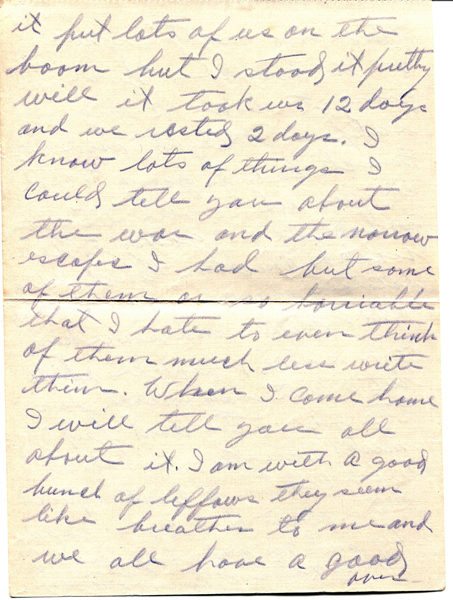 it put lots of us on the
boom but I stood it pretty
will it took us 12 days
and we rested 2 days. I
know lots of things I
could tell you about
the war and the norrow
escapes I had but some
of them ar so horriable
that I hate to even think
of them much less write
them. When I come home
I will tell you all
about it. I am with a good
bunch of leffows they seem
like breather to me and
we all have a good
over